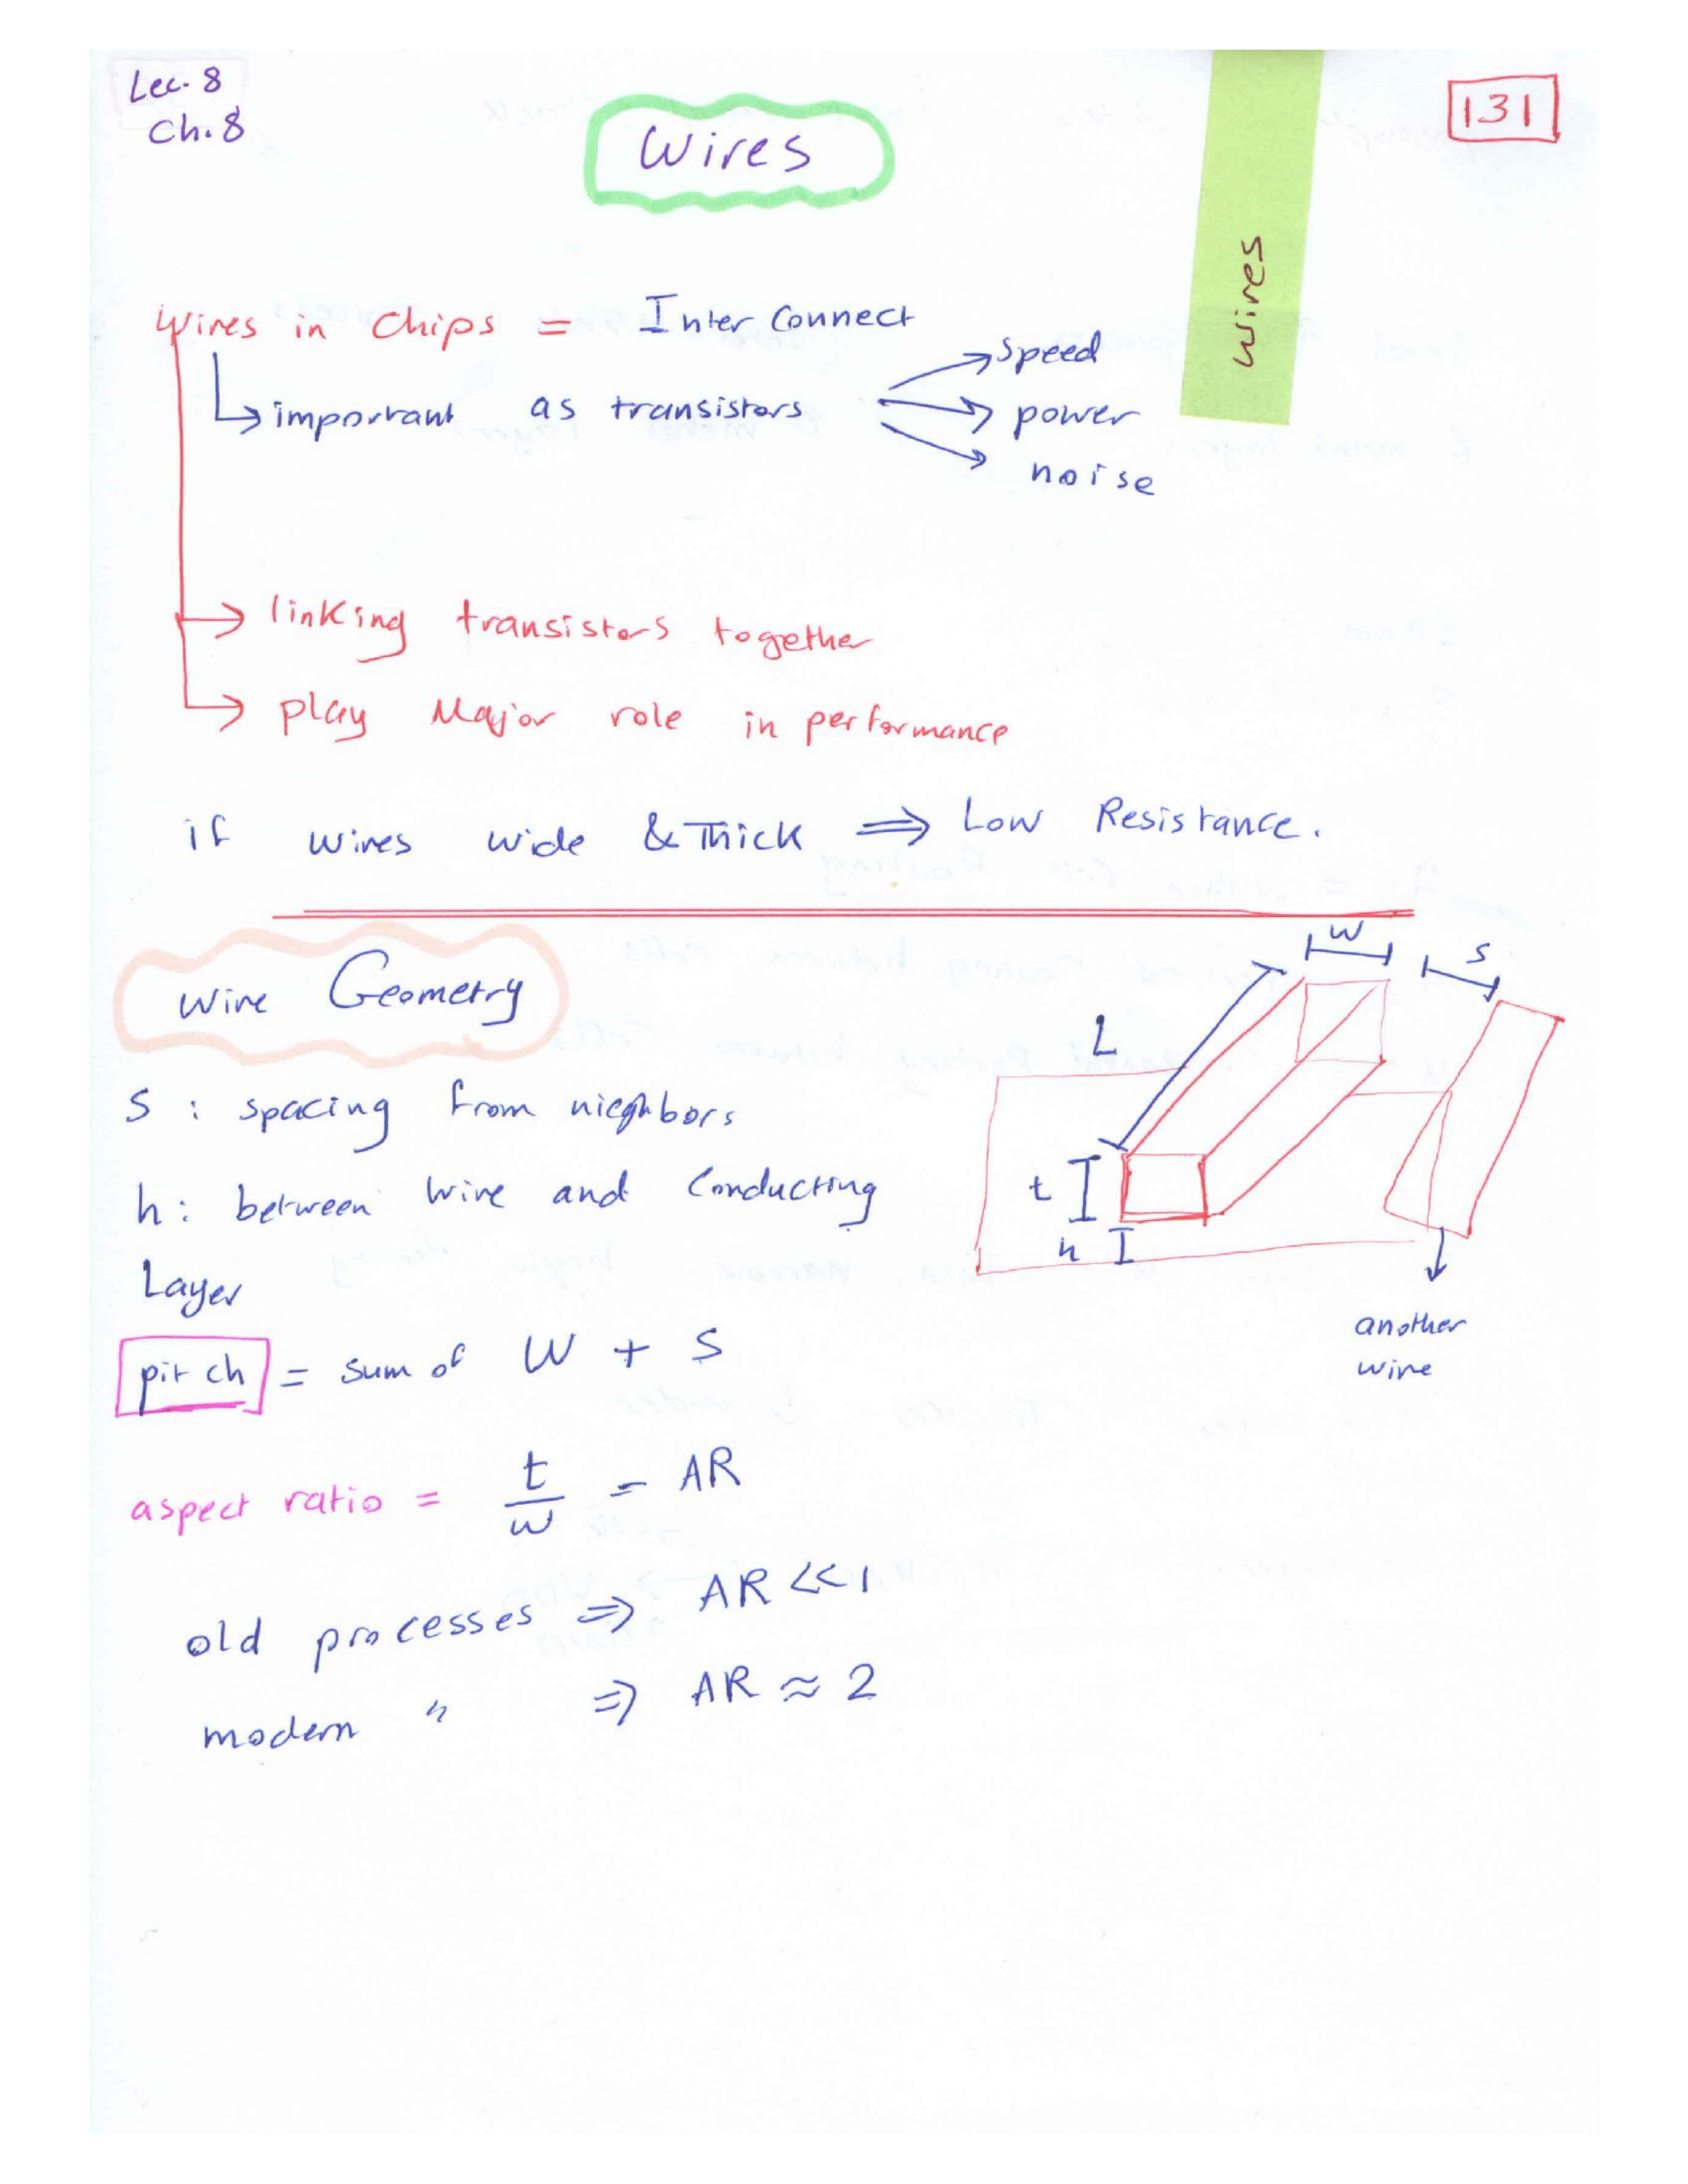 Lec. 8
Ch. 8
131
Wires
Wires
Wires in Chips = InterConnect
important as transistors
speed
power
noise
linking transistors together
play Major role in performance
if wires wide & Thick ⇒ Low Resistance.
Wire Geometry
W
S
L
t
h
another
wire
S : spacing from nieghbors
h : between wire and Conducting
Layer
pitch = sum of W + S
aspect ratio = t/w = AR
old processes ⇒ AR << 1
modern " ⇒ AR ≈ 2